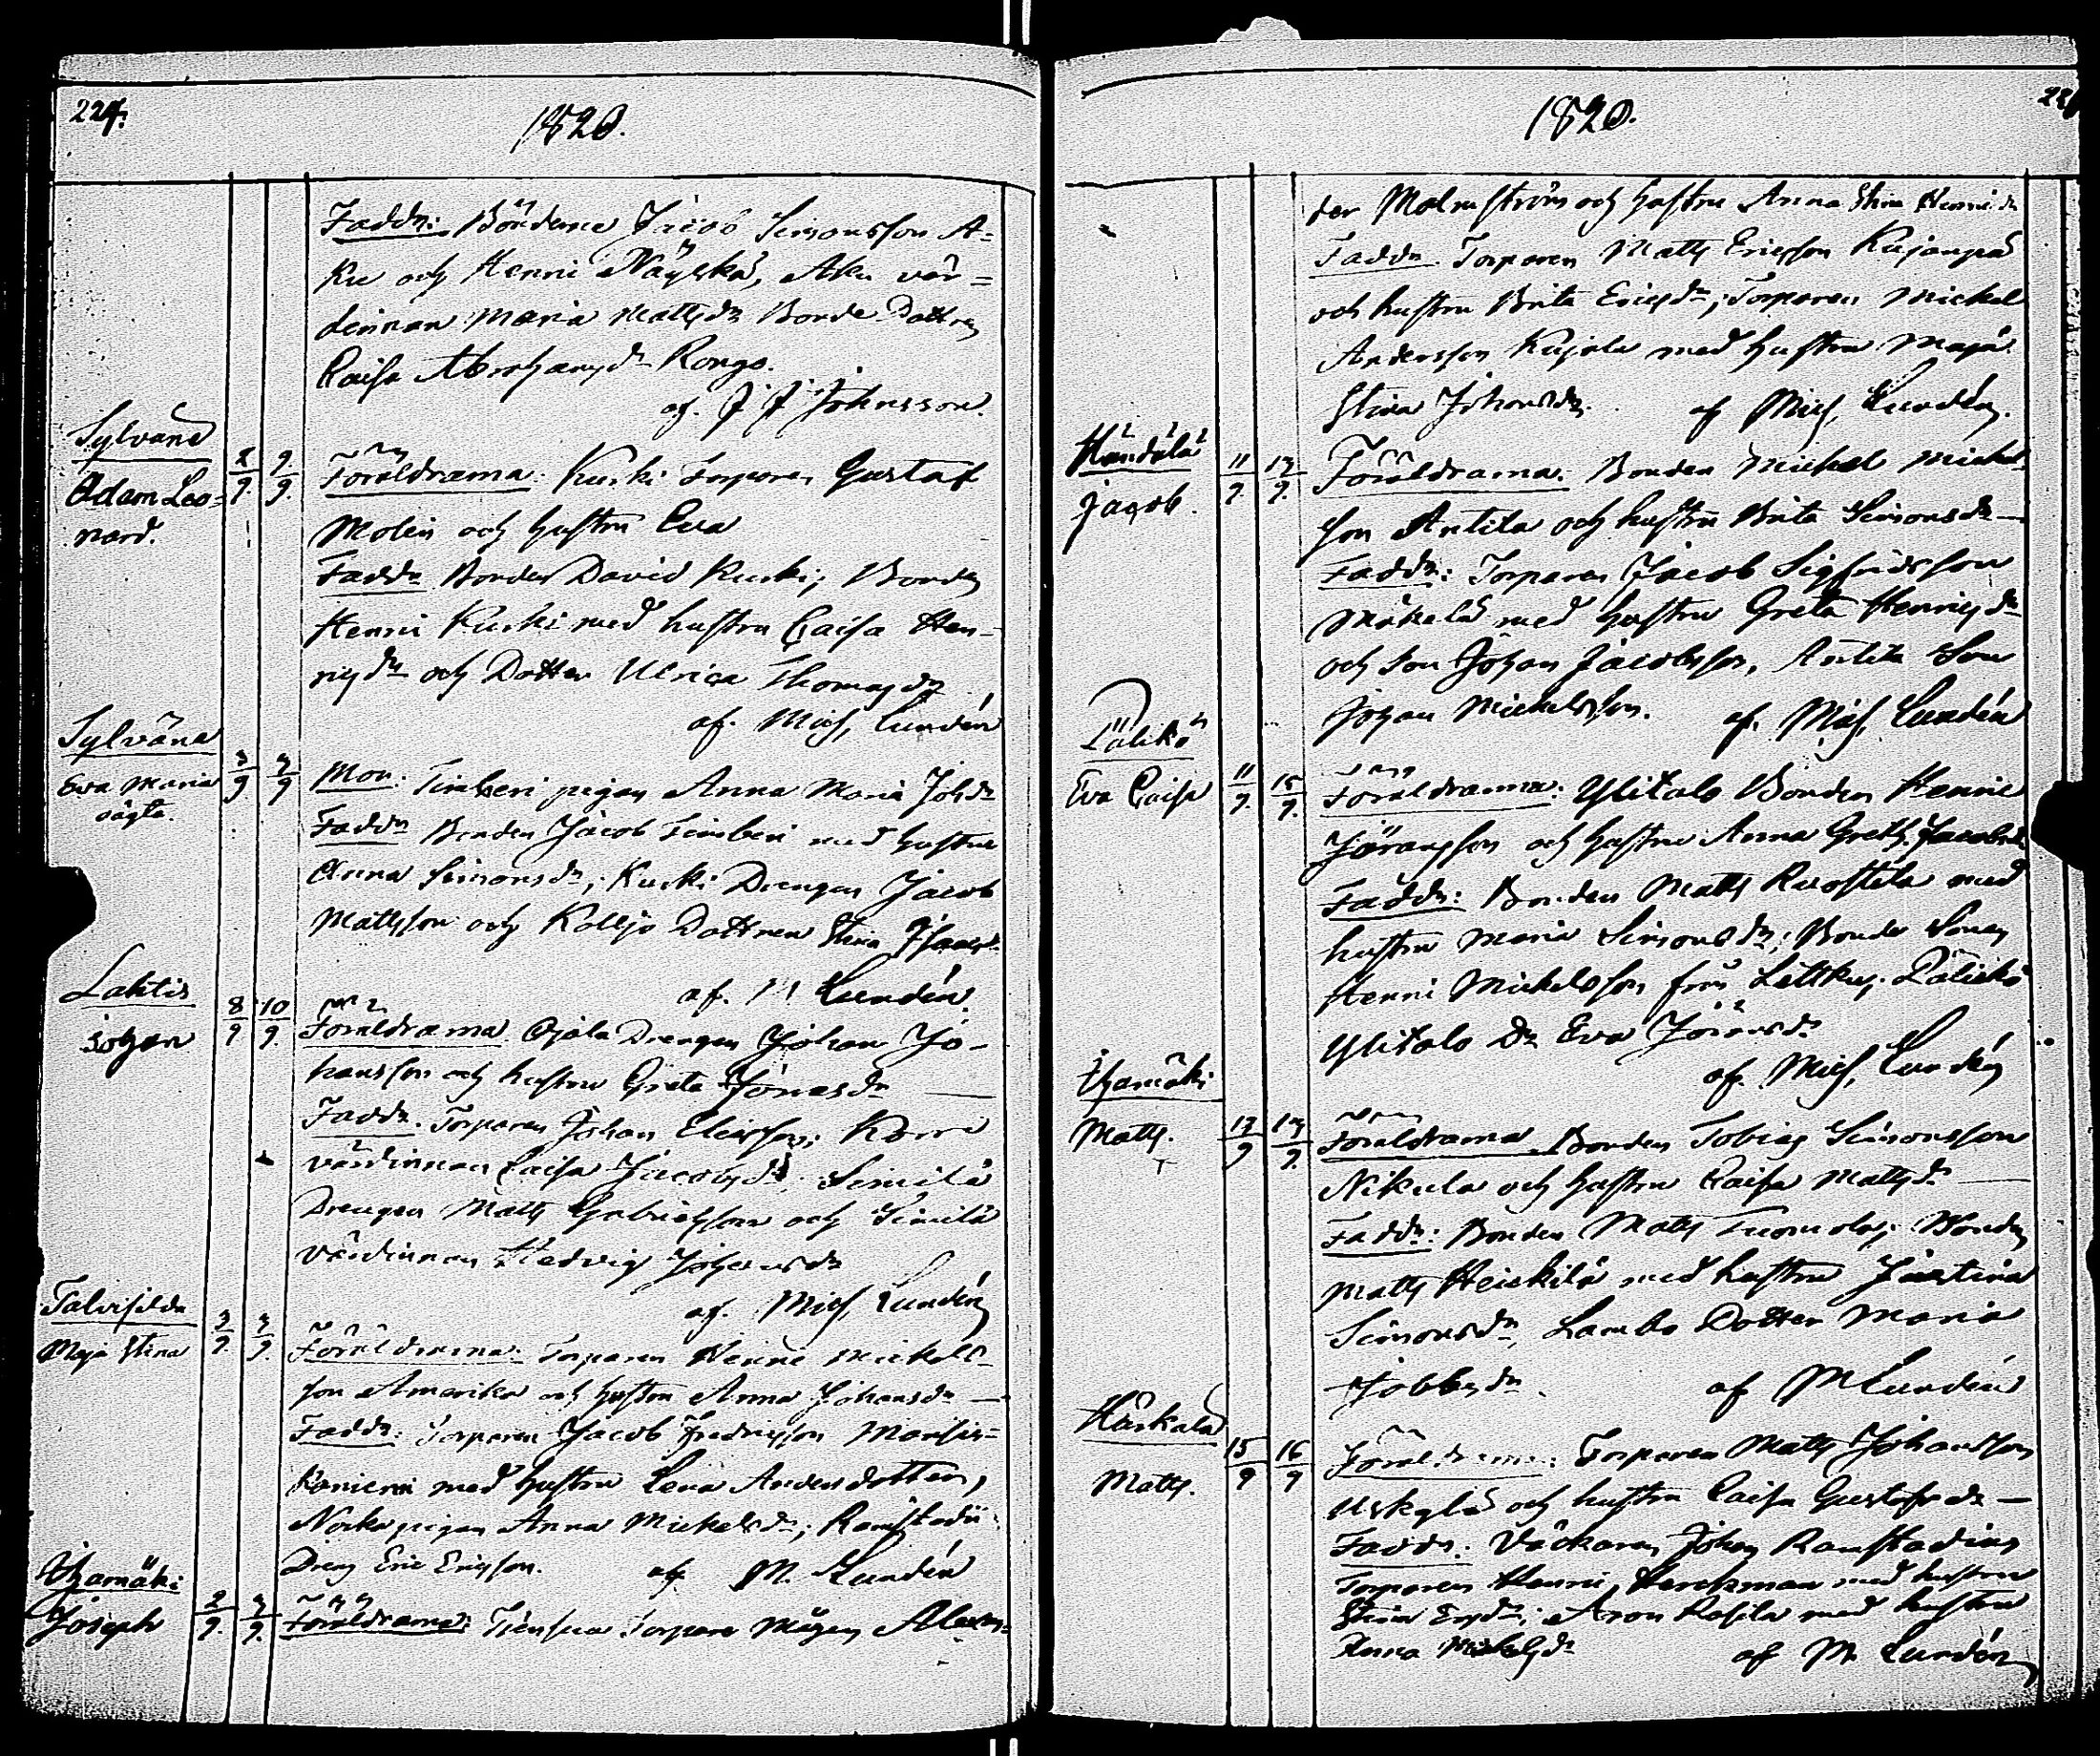 224.
1820.
Faddr: Bönderne Jacob Simonsson A=
ku och Henric Näyskä, Aku vär=
dinnan Maria Mattsdr Bonde Dottren
Caisa Abrahamsdr Rongo.
af. J J Johnsson.
Sylvänä
Adam Leo=
nard.
2/9. 9/9.
Föräldrarna: Kurki Torparen Gustaf
Molin och hustru Eva
Faddr Bonden David Kurki; Bonden
Henric Kurki med hustru Caisa Hen-
ricsdr och Dotter Ulrica Thomasdr
af. Mich, Lundén
Sylvänä
Eva Maria
oägta.
3/9 /9
Mon: Timberi pigan Anna Maria Johdr
Faddr Bonden Jacob Timberi med hustru
Anna Simonsdr; Kurki Drengen Jacob
Mattsson och Kolljo Dottren Stina Isaacsdr.
af. M Lundén.
Lahtis
Johan
8/9 10/9.
Föräldrarna Ojala Drengen Johan Jo-
hansson och hustru Greta Jonasdr
Faddr. Torparen Johan Eliasson; Korri
värdinnan Caisa Jacobsdr; Similä
Drengen Matts Gabrielsson och Similä
värdinnan Hedvig Johansdr
af. Mich, Lundén
Talvisilda
Maja Stina
3/9. /9.
Föräldrarna: Torparen Henric Mickels-
son Amerika och hustru Anna Johansdr
Faddr: Torparen Jacob Fredricsson
med hustru Lena Andersdotter,
Nocka pigan Anna Mickelsdr;
Dreng Eric Ericsson. af M. Lundén
Ihamäki
Joseph
2/9. /9.
Föräldrarna: Torpare Mågen Alexan=
1820.
der Malmström och hustru Anna Stina Henricsdr
Faddr Torparen Matts Ericsson Kujanpä
och hustru Brita Ericsdr; Torparen Mickel
Andersson Kujala med hustru Maja
Stina Johansdr. af Mich, Lundén.
Händälä
Jacob.
11/9. /9.
Föräldrarna: Bonden Mickel Mickels
son Antila och hustru Brita Simonsdr
Faddr: Torparen Jacob Sigfridsson
Mäkelä med hustru Greta Henricsdr
och Son Johan Jacobsson, Antila Son
Johan Mickelsson. af. Mich, Lundén
Pälikö
Eva Caisa
11/9. 15/9.
Föräldrarna: Ylitalo Bonden Henric
Jöransson och hustru Anna Greth. Jacobsdr
Faddr: Bonden Matts Ruostela med
hustru Maria Simonsdr; Bonde Sonen
Henric Mickelsson från
Ylitalo Dr Eva Jöransdr
af. Mich, Lundén
Ihamäki
Matts.
13/9 /9.
Föräldrarna Bonden Tobias Simonsson
Nikula och hustru Caisa Mattsdr
Faddr: Bonden Matts Tuomola; Bonden
Matts Heickilä med hustru Justina
Simonsdr, Lambo Dotter Maria
Jobbsdr. af M Lundén
Härkälä
Matts.
15/9 16/9
Föräldrarna: Torparen Matts Johansson
Uskylä och hustru Caisa Gustafsdr
Faddr: Väckaren Johan Ramstadius
Torparen Henric Herckman med hustru
Stina Ericsdr; Aron Rasila med hustru
Anna Mickelsdr af M. Lundén